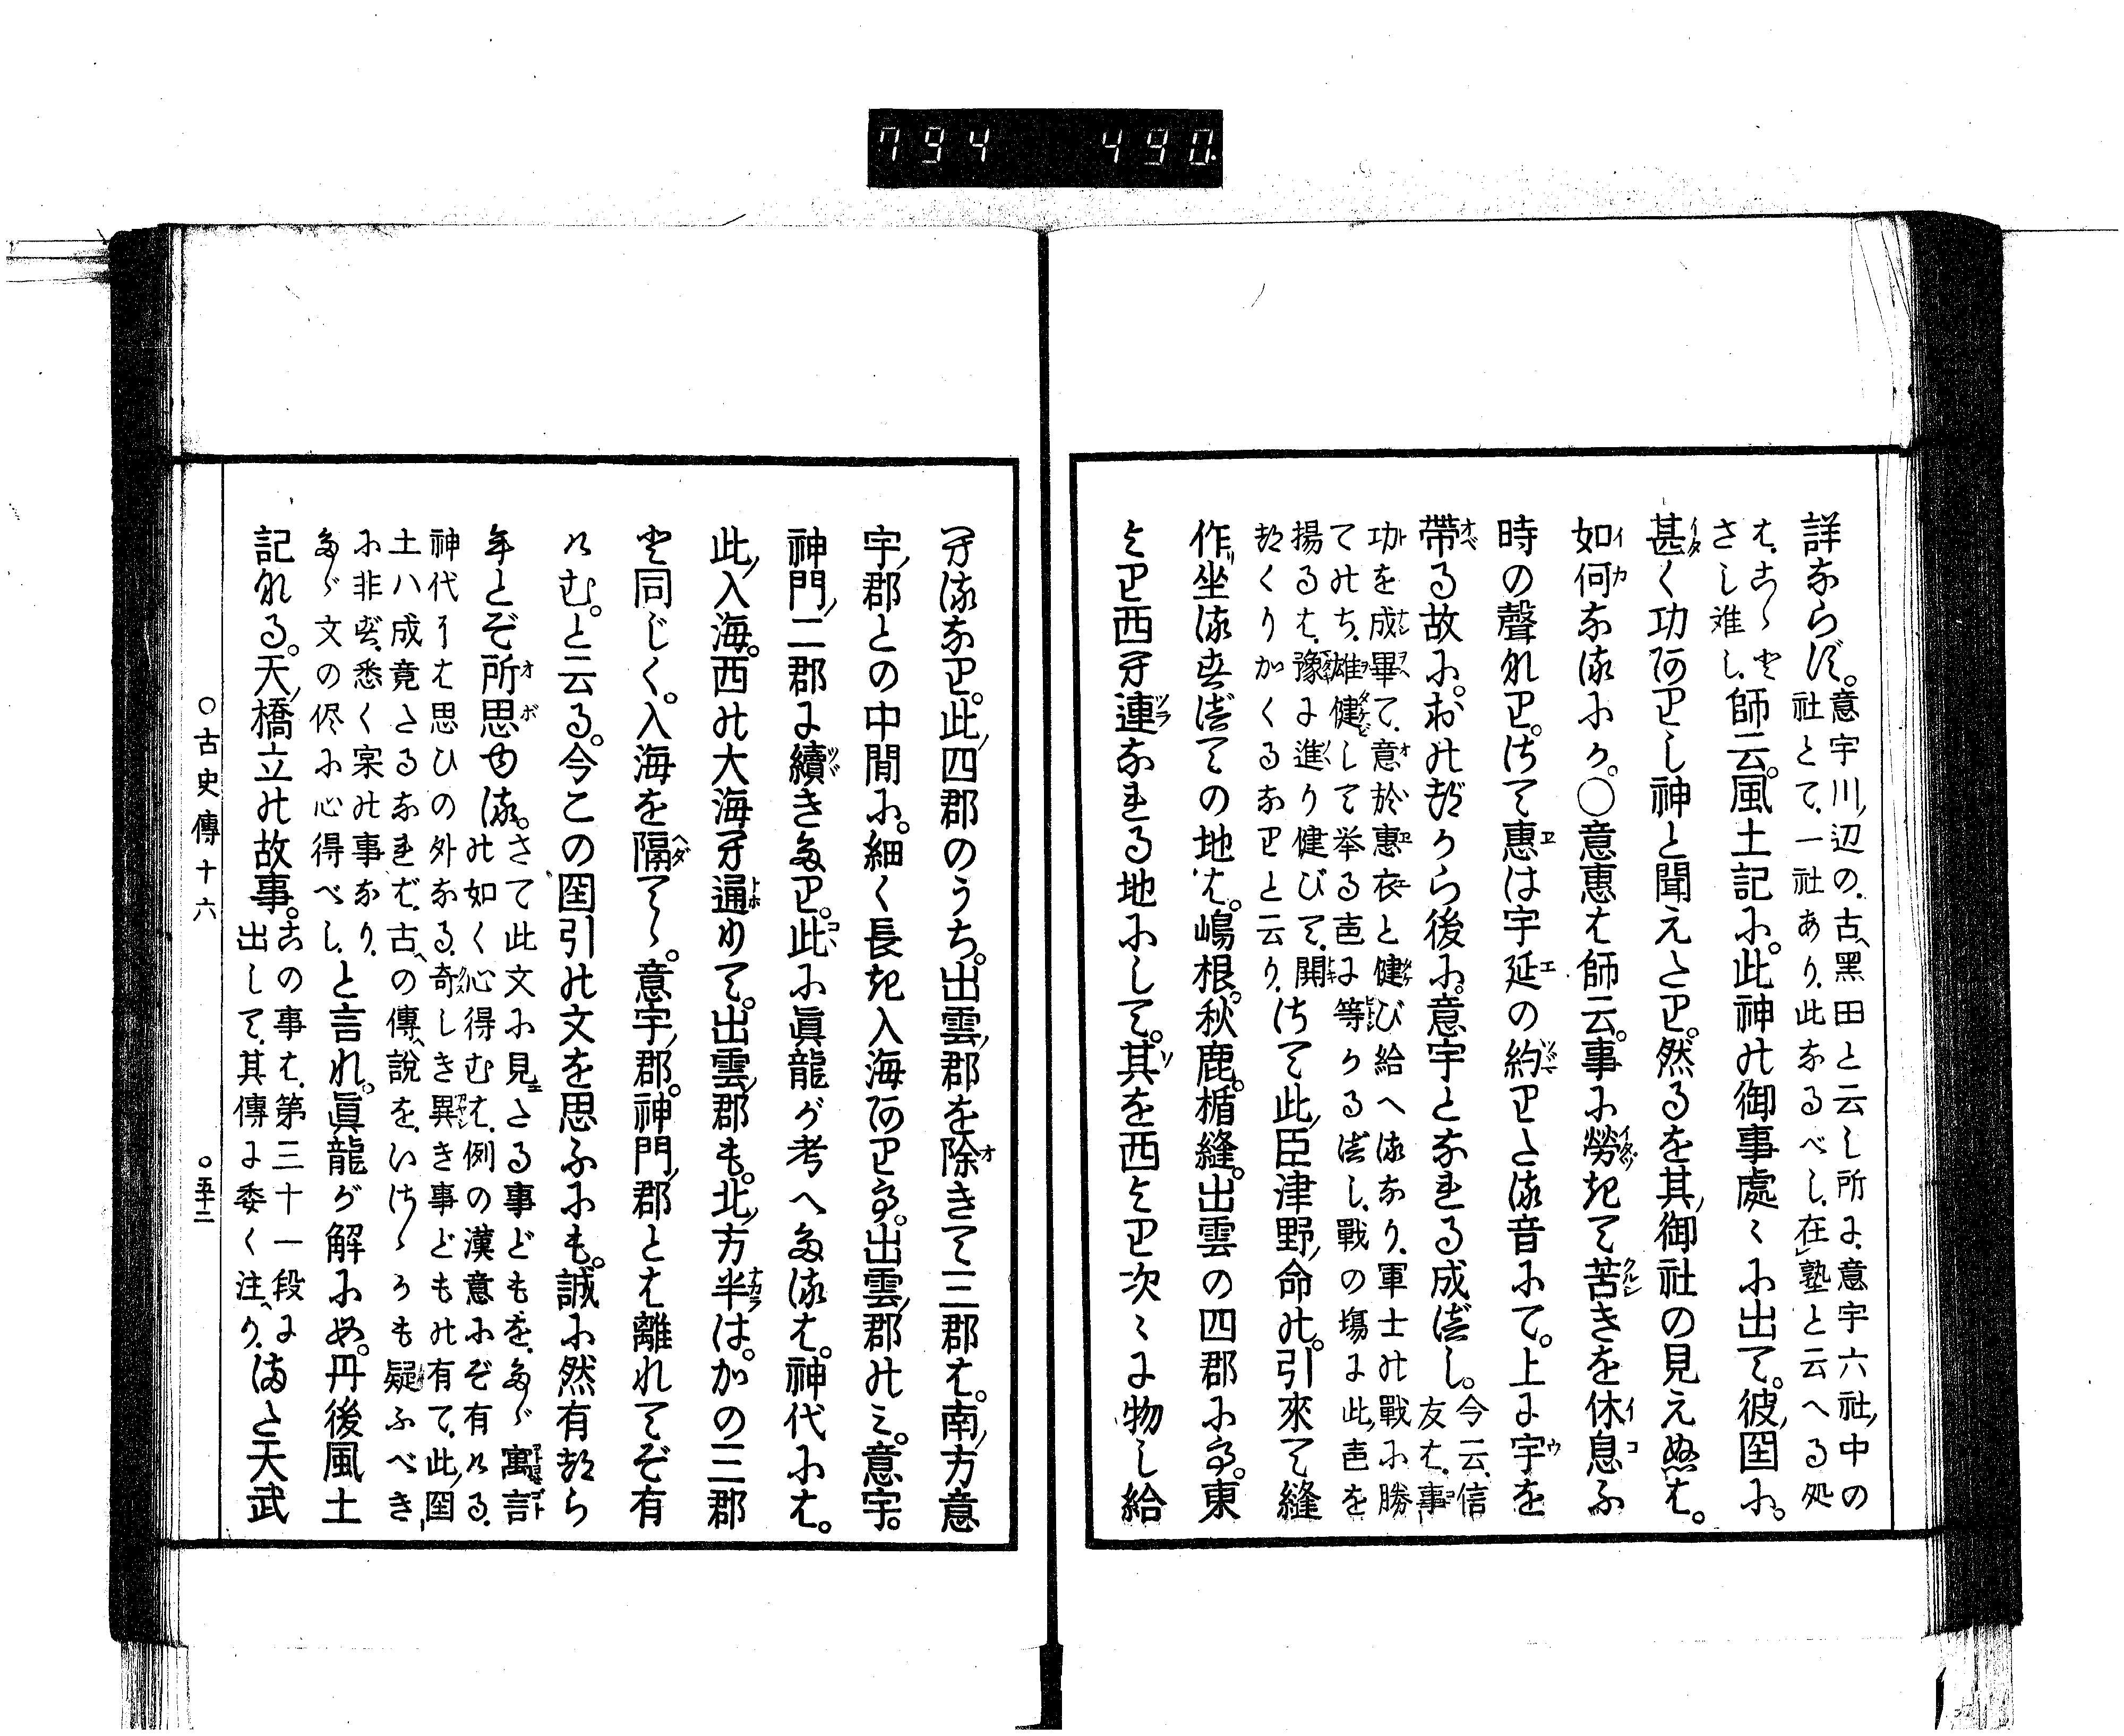 794 490
詳ならず。意宇川ノ辺の、古ヘ黑田と云し所に、意宇六社ノ中の
社とて、一社あり、此なるべし、在ノ塾と云へる処
は、こゝと
さし難し、師云。風土記に。此神の御事處々に出て。彼ノ囶に。
甚く功ありし神と聞えたり。然るを其ノ御社の見えぬは。
如何なるにか。○意惠は師云。事に勞きて苦きを休息ふ
時の聲なり。さて惠は宇延の約りたる音にて。上に宇を
帶る故に。おのづから後に。意宇となれる成べし。今云、信
友は、事
功を成畢て、意於惠衣と健び給へるなり、軍士の戰に勝
てのち、雄健して挙る声に等かるべし、戰の場に此ノ声を
揚るは、豫に進り健びて、鬨
つくりかくるなりと云り、さて此ノ臣津野ノ命の。引來て縫
作坐るすべての地は。嶋根。秋鹿。楯縫。出雲の四郡にて。東
より西まで連なれる地にして。其を西より次々に物し給
まるなり。此ノ四郡のうち。出雲ノ郡を除きて三郡は。南ノ方意
宇ノ郡との中間に。細く長き入海ありて。出雲ノ郡のミ。意宇。
神門ノ二郡に續きたり。此に眞龍が考へたるは。神代には。
此ノ入海。西の大海まで通りて。出雲ノ郡も。北ノ方半は。かの三郡
と同じく。入海を隔てゝ。意宇ノ郡。神門ノ郡とは離れてぞ有
けむ。と云る。今この囶引の文を思ふにも。誠に然有つら
むとぞ所思ゆる。さて此文に見エたる事どもを、たゞ寓言
の如く心得むは、例の漢意にぞ有ける、
神代には思ひの外なる、奇しき異き事どもの有て、此ノ囶
土ハ成竟たるなれば、古ヘの傳ヘ說を、いさゝかも疑ふべき
に非ず、悉く実の事なり、
たゞ文の侭に心得べし、と言れ。眞龍が解にも。丹後風土
記なる。天ノ橋立の故事。この事は、第三十一段に
出して、其傳に委く注ヘり、また天武
○古史傳十六
○五十二